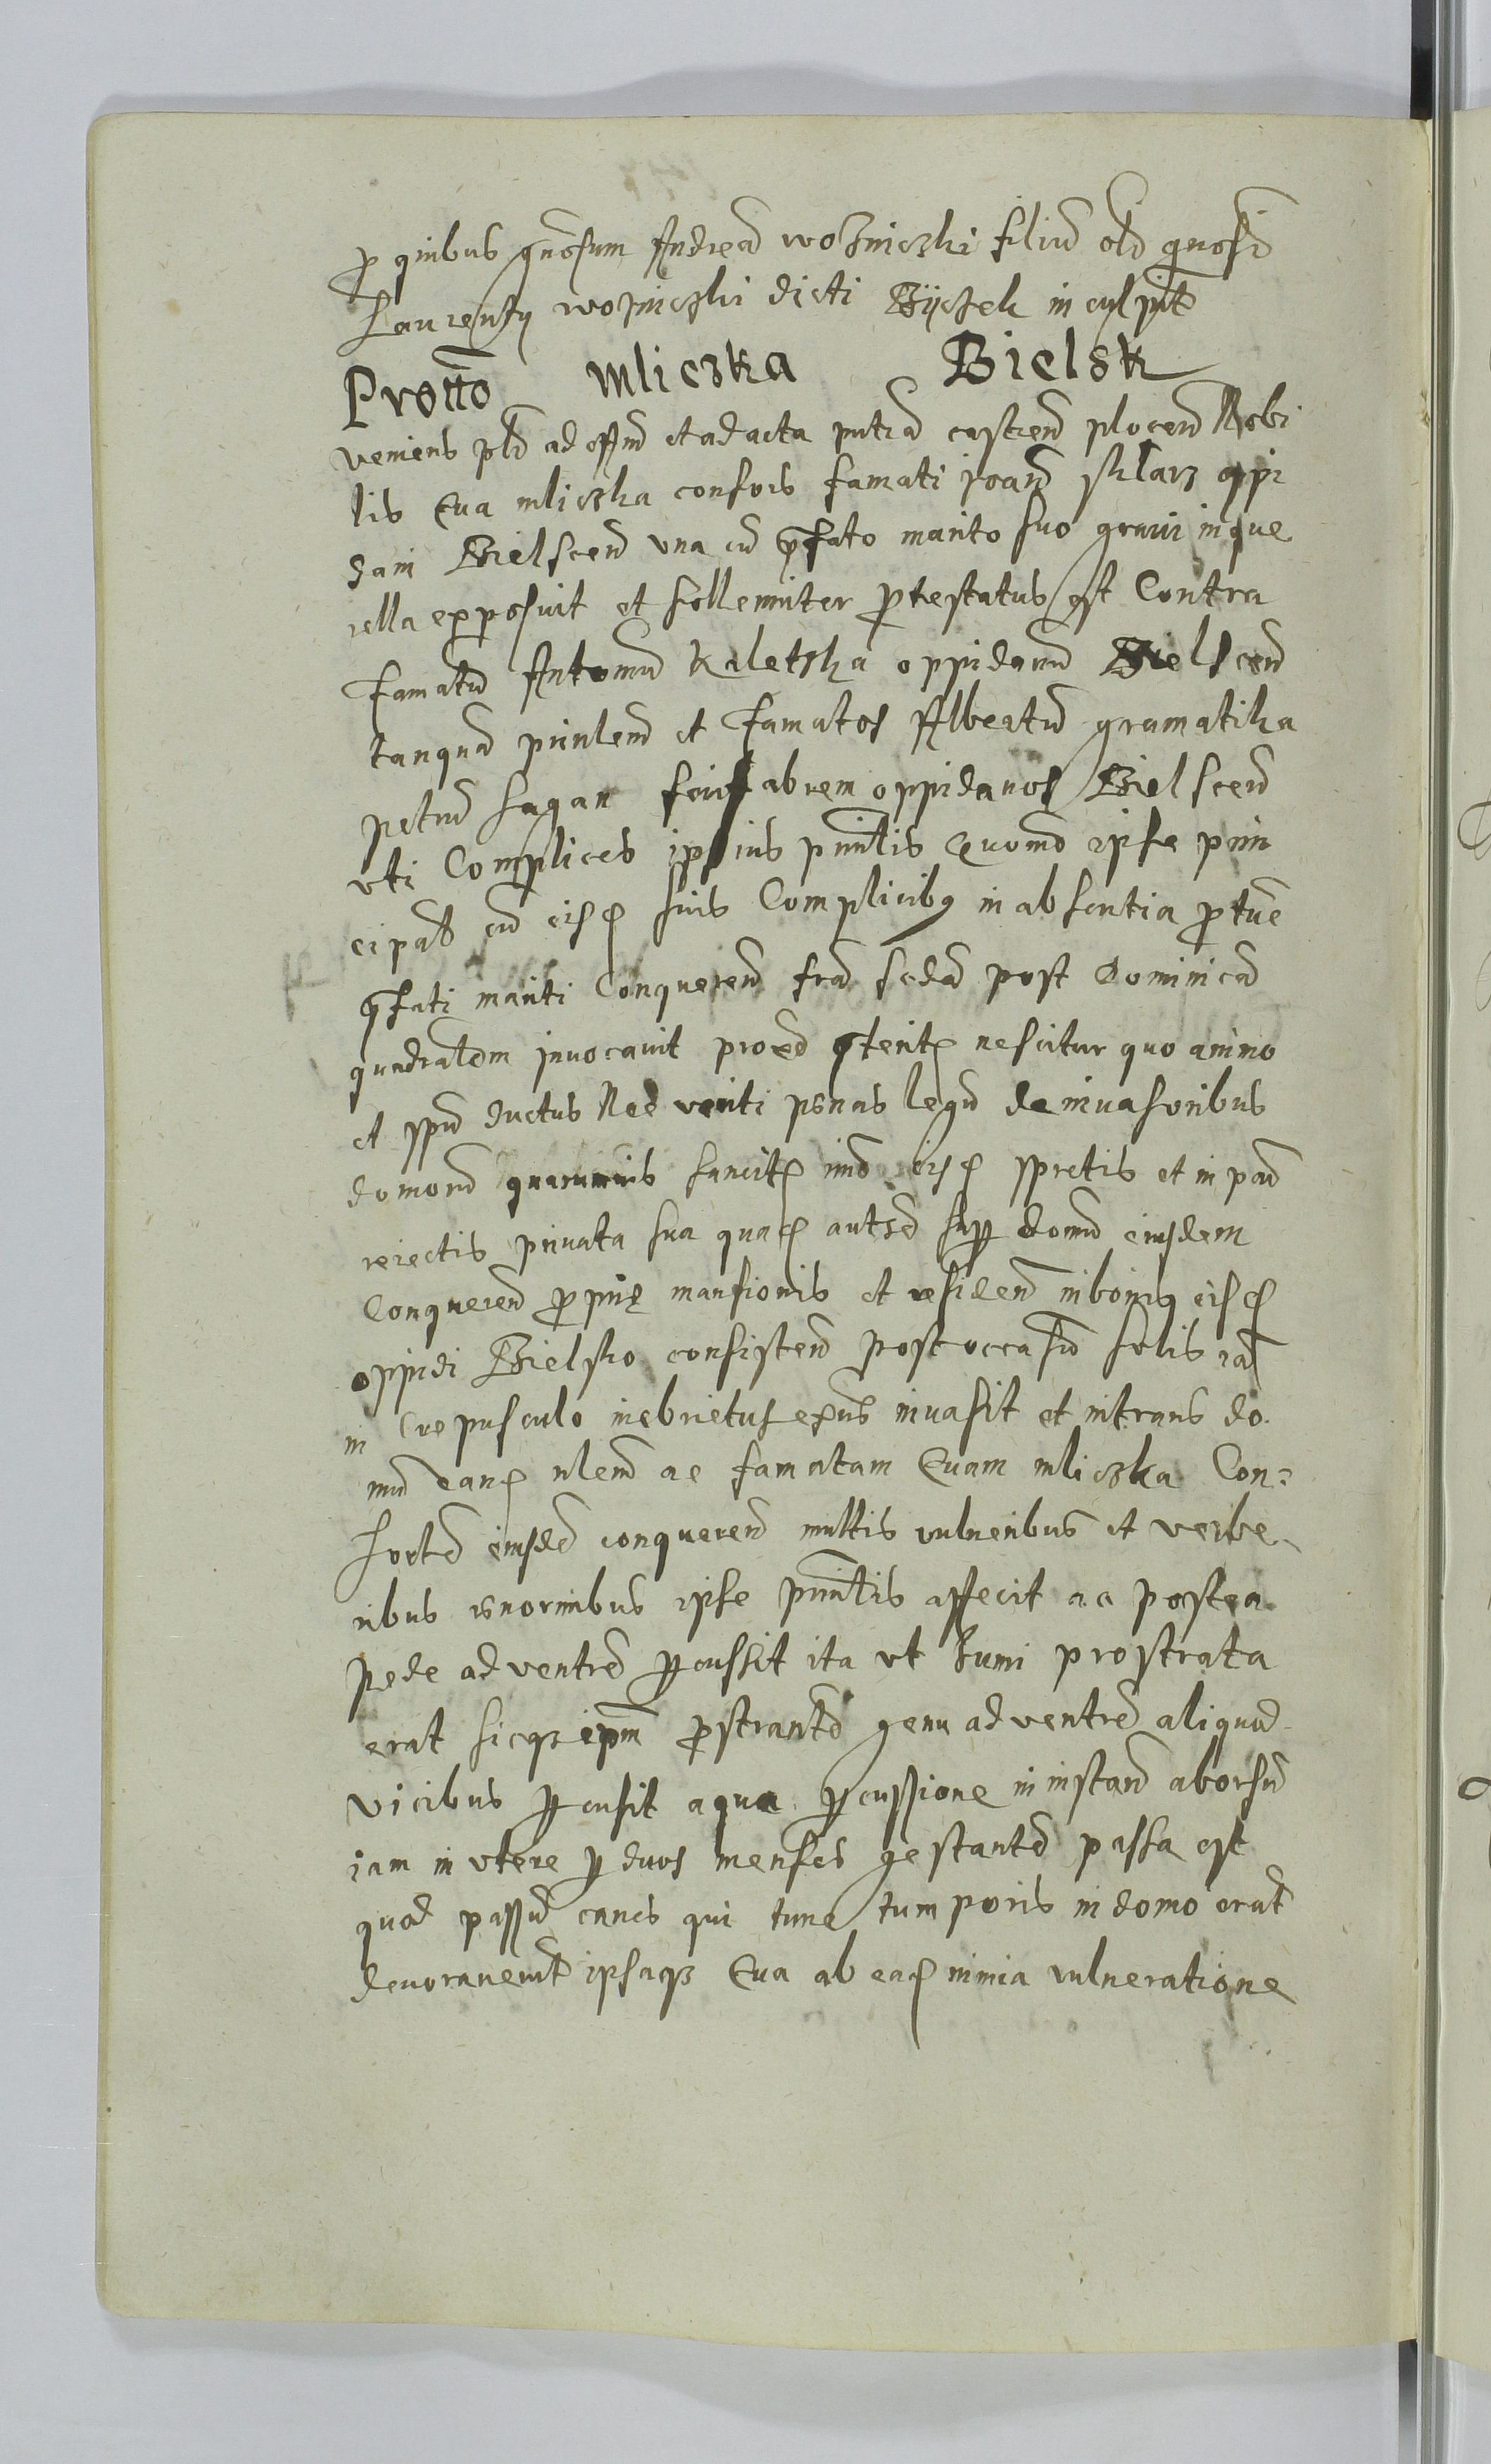 p quibus gnosum Andrea wozniczki filiu olī gnosi
Laurenty wozniczki dicti Byczek in culpat
Protto mliczka Bielsk
veniens plr ad offm et ad acta pntia castren plocen Nobi
lis Eva mliczka consors famati Joan sklarz oppi
dani Bielscen vna cu pfato marito suo gravi in que
rella exposuit et sollemniter ptestatus est Contra
famatu Antoniu Kaletzka oppidanu Bielscen
tanqua prinlem et famatos Albertu gramatika
petru sagan fabrem oppidanos Bielscen
vti Complices ipsius prinlis Quomo ipse prin
cipals cu eisd suis Complicibq in absentia ptuc
pfati mariti Conqueren fra scda post Dominica
quadralem Jnvocavit proxe pterit nescitur quo animo
et spu ductus Nec veriti penas legu de invasoribus
domoru quarumvis sancit imo eisd spretis et in pari
reiectis privata sua quad autte sup domu eiusdem
Conqueren pprie mansionis et residen in bonis eisd
oppidi Bielsko consisten post occasu solis ia
in Crepusculo inebrietus exns invasit et intrans do
mu eand nlem ac famatam Evam mliczka Con
sorte eiusde conqueren multis vulneribus et verbe
ribus enormibus ipse prinlis affecit ac postea
pede ad ventre pcussit ita vt humi prostrata
erat sicqz ipm pstrante genu ad ventre aliquod
vicibus pcusit a qua pcussione in instan aborsu
iam in vtere p duos menses gestante passa est
quod passu canes qui tunc tum poris in domo erat
devoraverut ipsaqz Eva ab ead nimia vulneratione